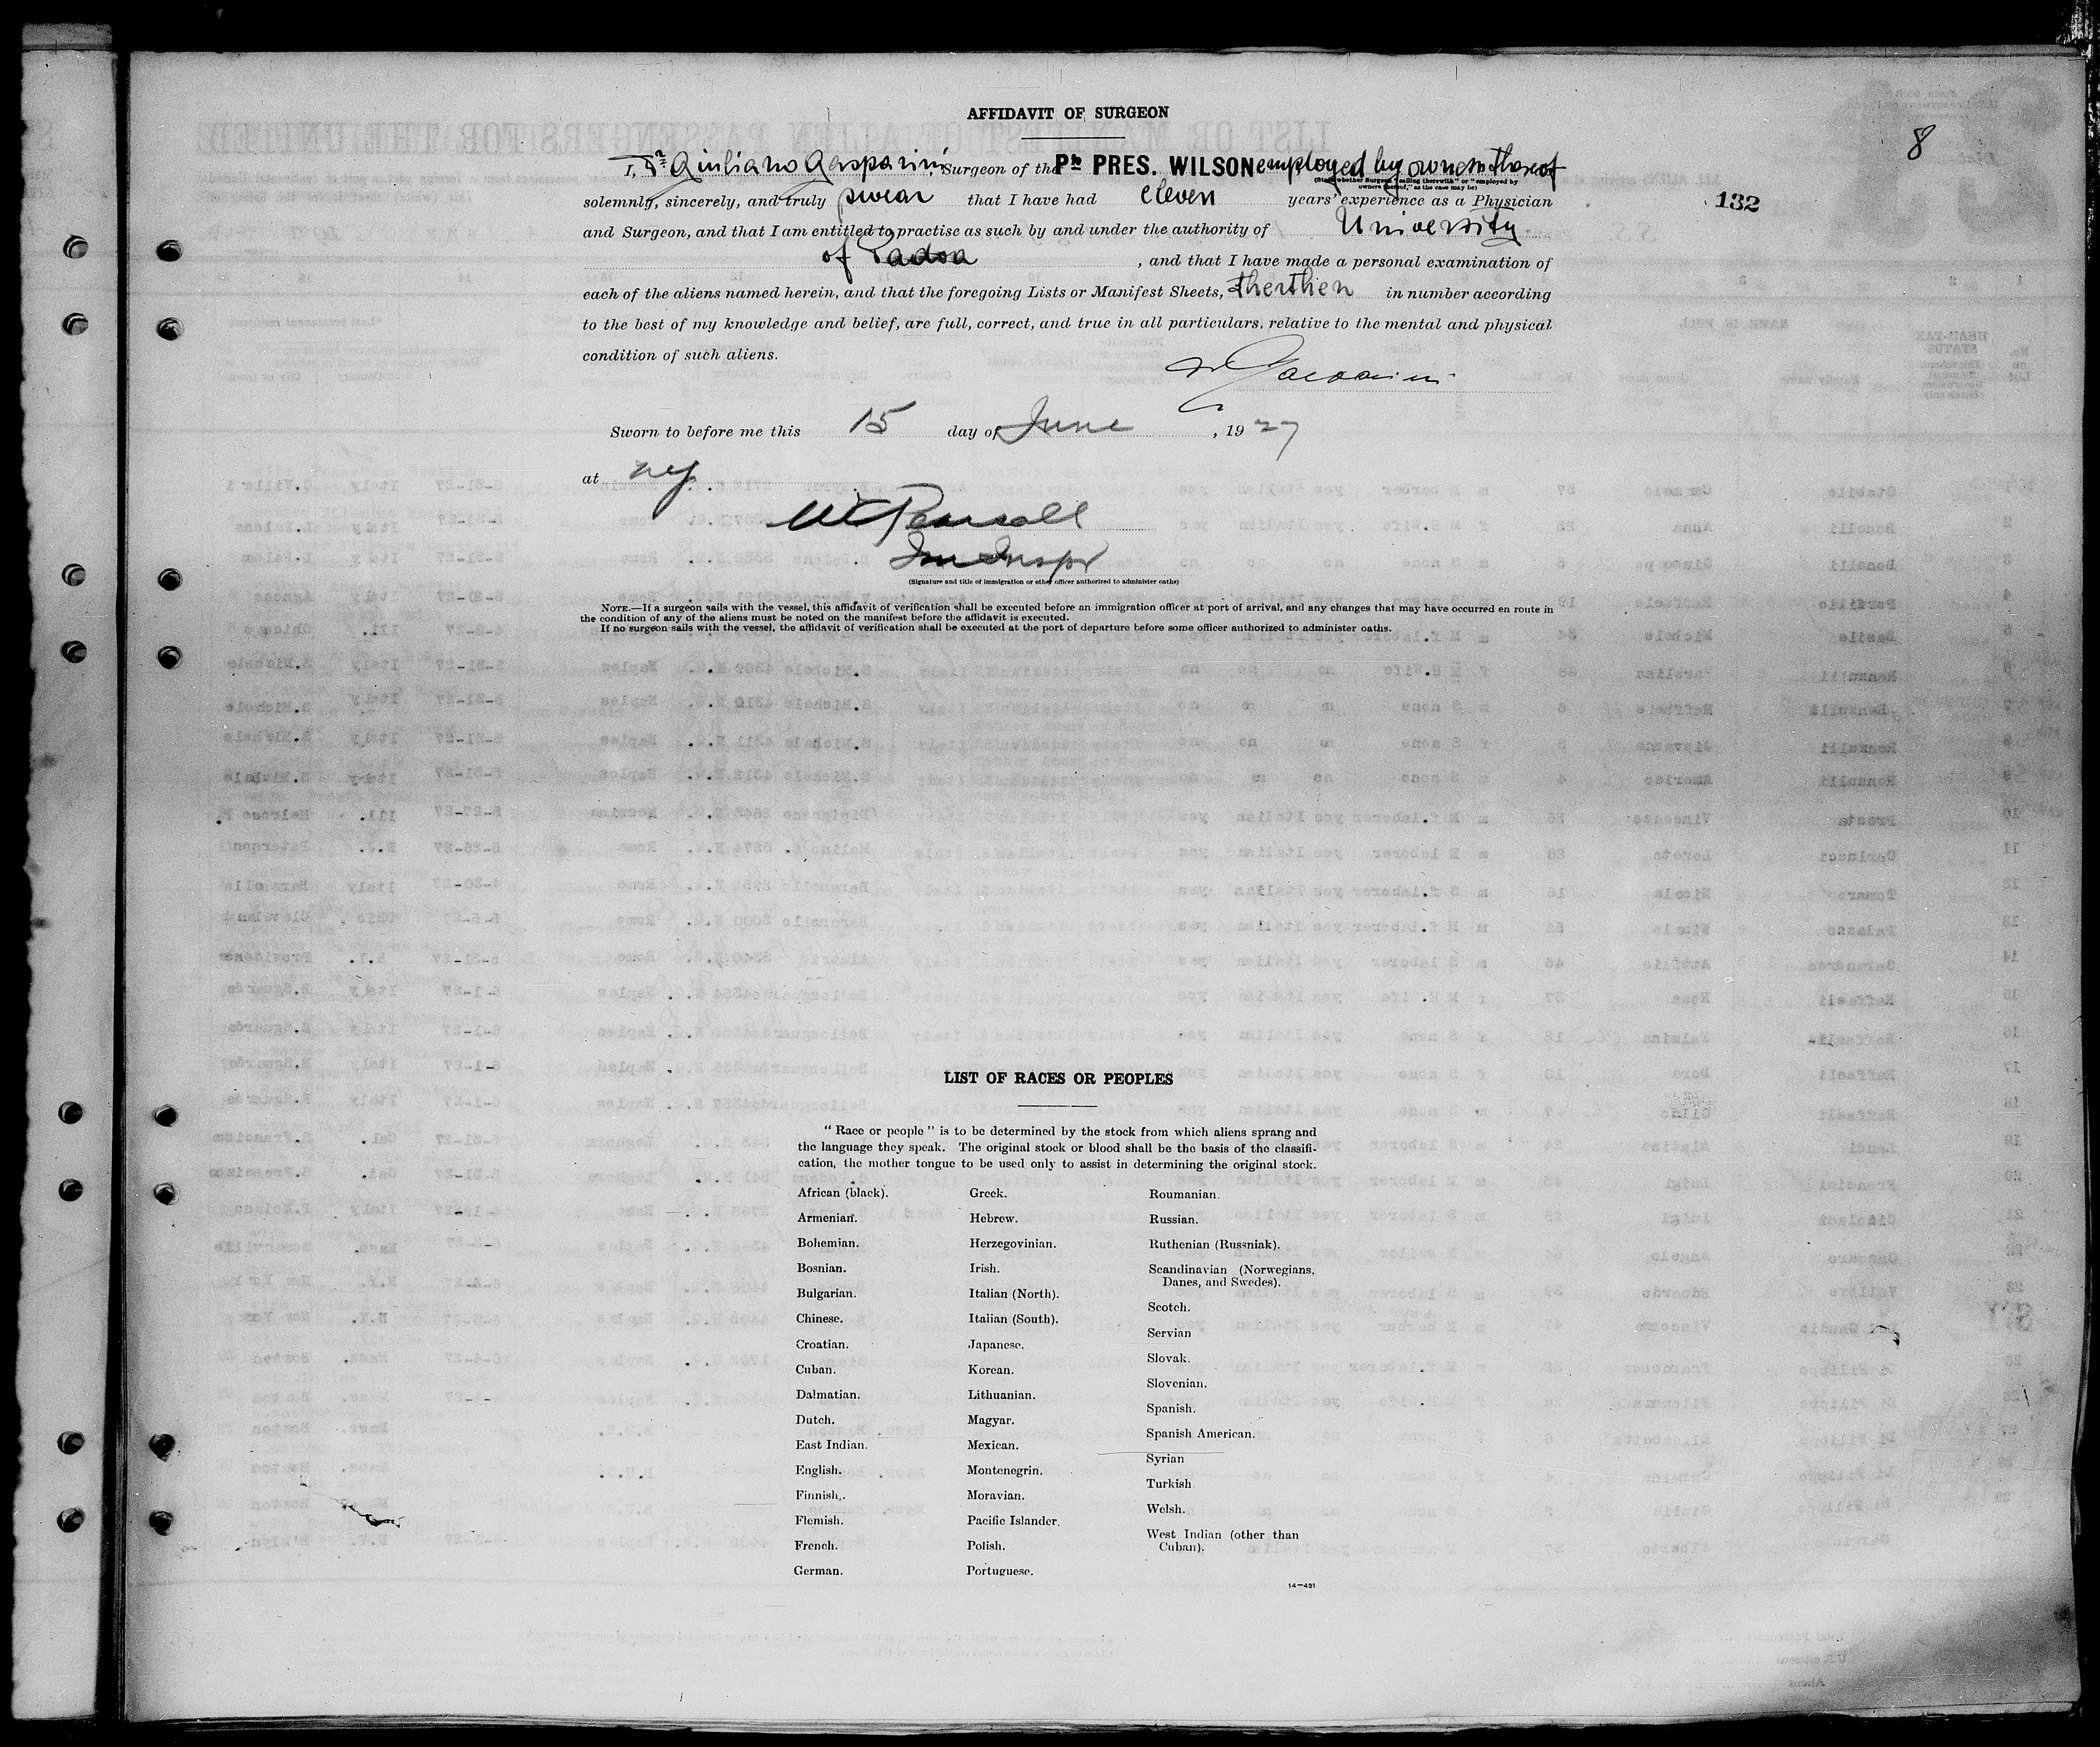 AFFIDAVIT OF SURGEON
8
I, Dr Giuliano Gasparini, Surgeon of the Pfo PRES. WILSON employed by owners thereof
(State whether Surgeon "sailing therewith" or "employed by
owners thereof," as the case may be)
solemnly, sincerely, and truly swear that I have had eleven years' experience as a Physician
132
and Surgeon, and that I am entitled to practise as such by and under the authority of University
of Padoa, and that I have made a personal examination of
each of the aliens named herein, and that the foregoing Lists or Manifest Sheets, therthien in number according
to the best of my knowledge and belief, are full, correct, and true in all particulars, relative to the mental and physical
condition of such aliens.
Dr Gasparini
Sworn to before me this 15 day of June, 1927
at NY
Imm Inspr
(Signature and title of immigration or other officer authorized to administer oaths)
NOTE.—If a surgeon sails with the vessel, this affidavit of verification shall be executed before an immigration officer at port of arrival, and any changes that may have occurred en route in
the condition of any of the aliens must be noted on the manifest before the affidavit is executed.
If no surgeon sails with the vessel, the affidavit of verification shall be executed at the port of departure before some officer authorized to administer oaths.
LIST OF RACES OR PEOPLES
"Race or people" is to be determined by the stock from which aliens sprang and
the language they speak. The original stock or blood shall be the basis of the classifi-
cation, the mother tongue to be used only to assist in determining the original stock.
African (black).
Armenian.
Bohemian.
Bosnian.
Bulgarian.
Chinese.
Croatian.
Cuban.
Dalmatian.
Dutch.
East Indian.
English.
Finnish.
Flemish.
French.
German.
Greek.
Hebrew.
Herzegovinian.
Irish.
Italian (North).
Italian (South).
Japanese.
Korean.
Lithuanian.
Magyar.
Mexican.
Montenegrin.
Moravian.
Pacific Islander.
Polish.
Portuguese.
Roumanian.
Russian.
Ruthenian (Russniak).
Scandinavian (Norwegians,
Danes, and Swedes).
Scotch.
Servian
Slovak.
Slovenian.
Spanish.
Spanish American.
Syrian
Turkish
Welsh.
West Indian (other than
Cuban).
14—431